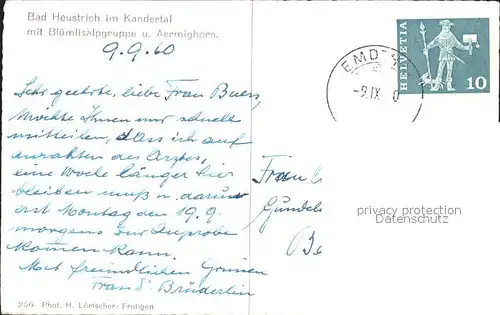 Bad Heustrich im Kandertal
mit Blümlisalpgruppe u. Aermighorn.
9.9.60
Sehr geehrte, liebe Frau
Möchte Ihnen nur schnell
mitteilen, dass ich auf
anrahten des Arztes,
eine Woche länger hier
bleiben muß u. darum
erst Montag den 19.9.
morgens zur Anprobe
kommen kann.
Mit freundlichen Grüssen
Frau S. Brüderlin
256 Phot. H. Lörtscher, Frutigen
EMDT
-9.IX 0
HELVETIA
10
Frau
Gundel
privacy protection
Datenschutz
Ba